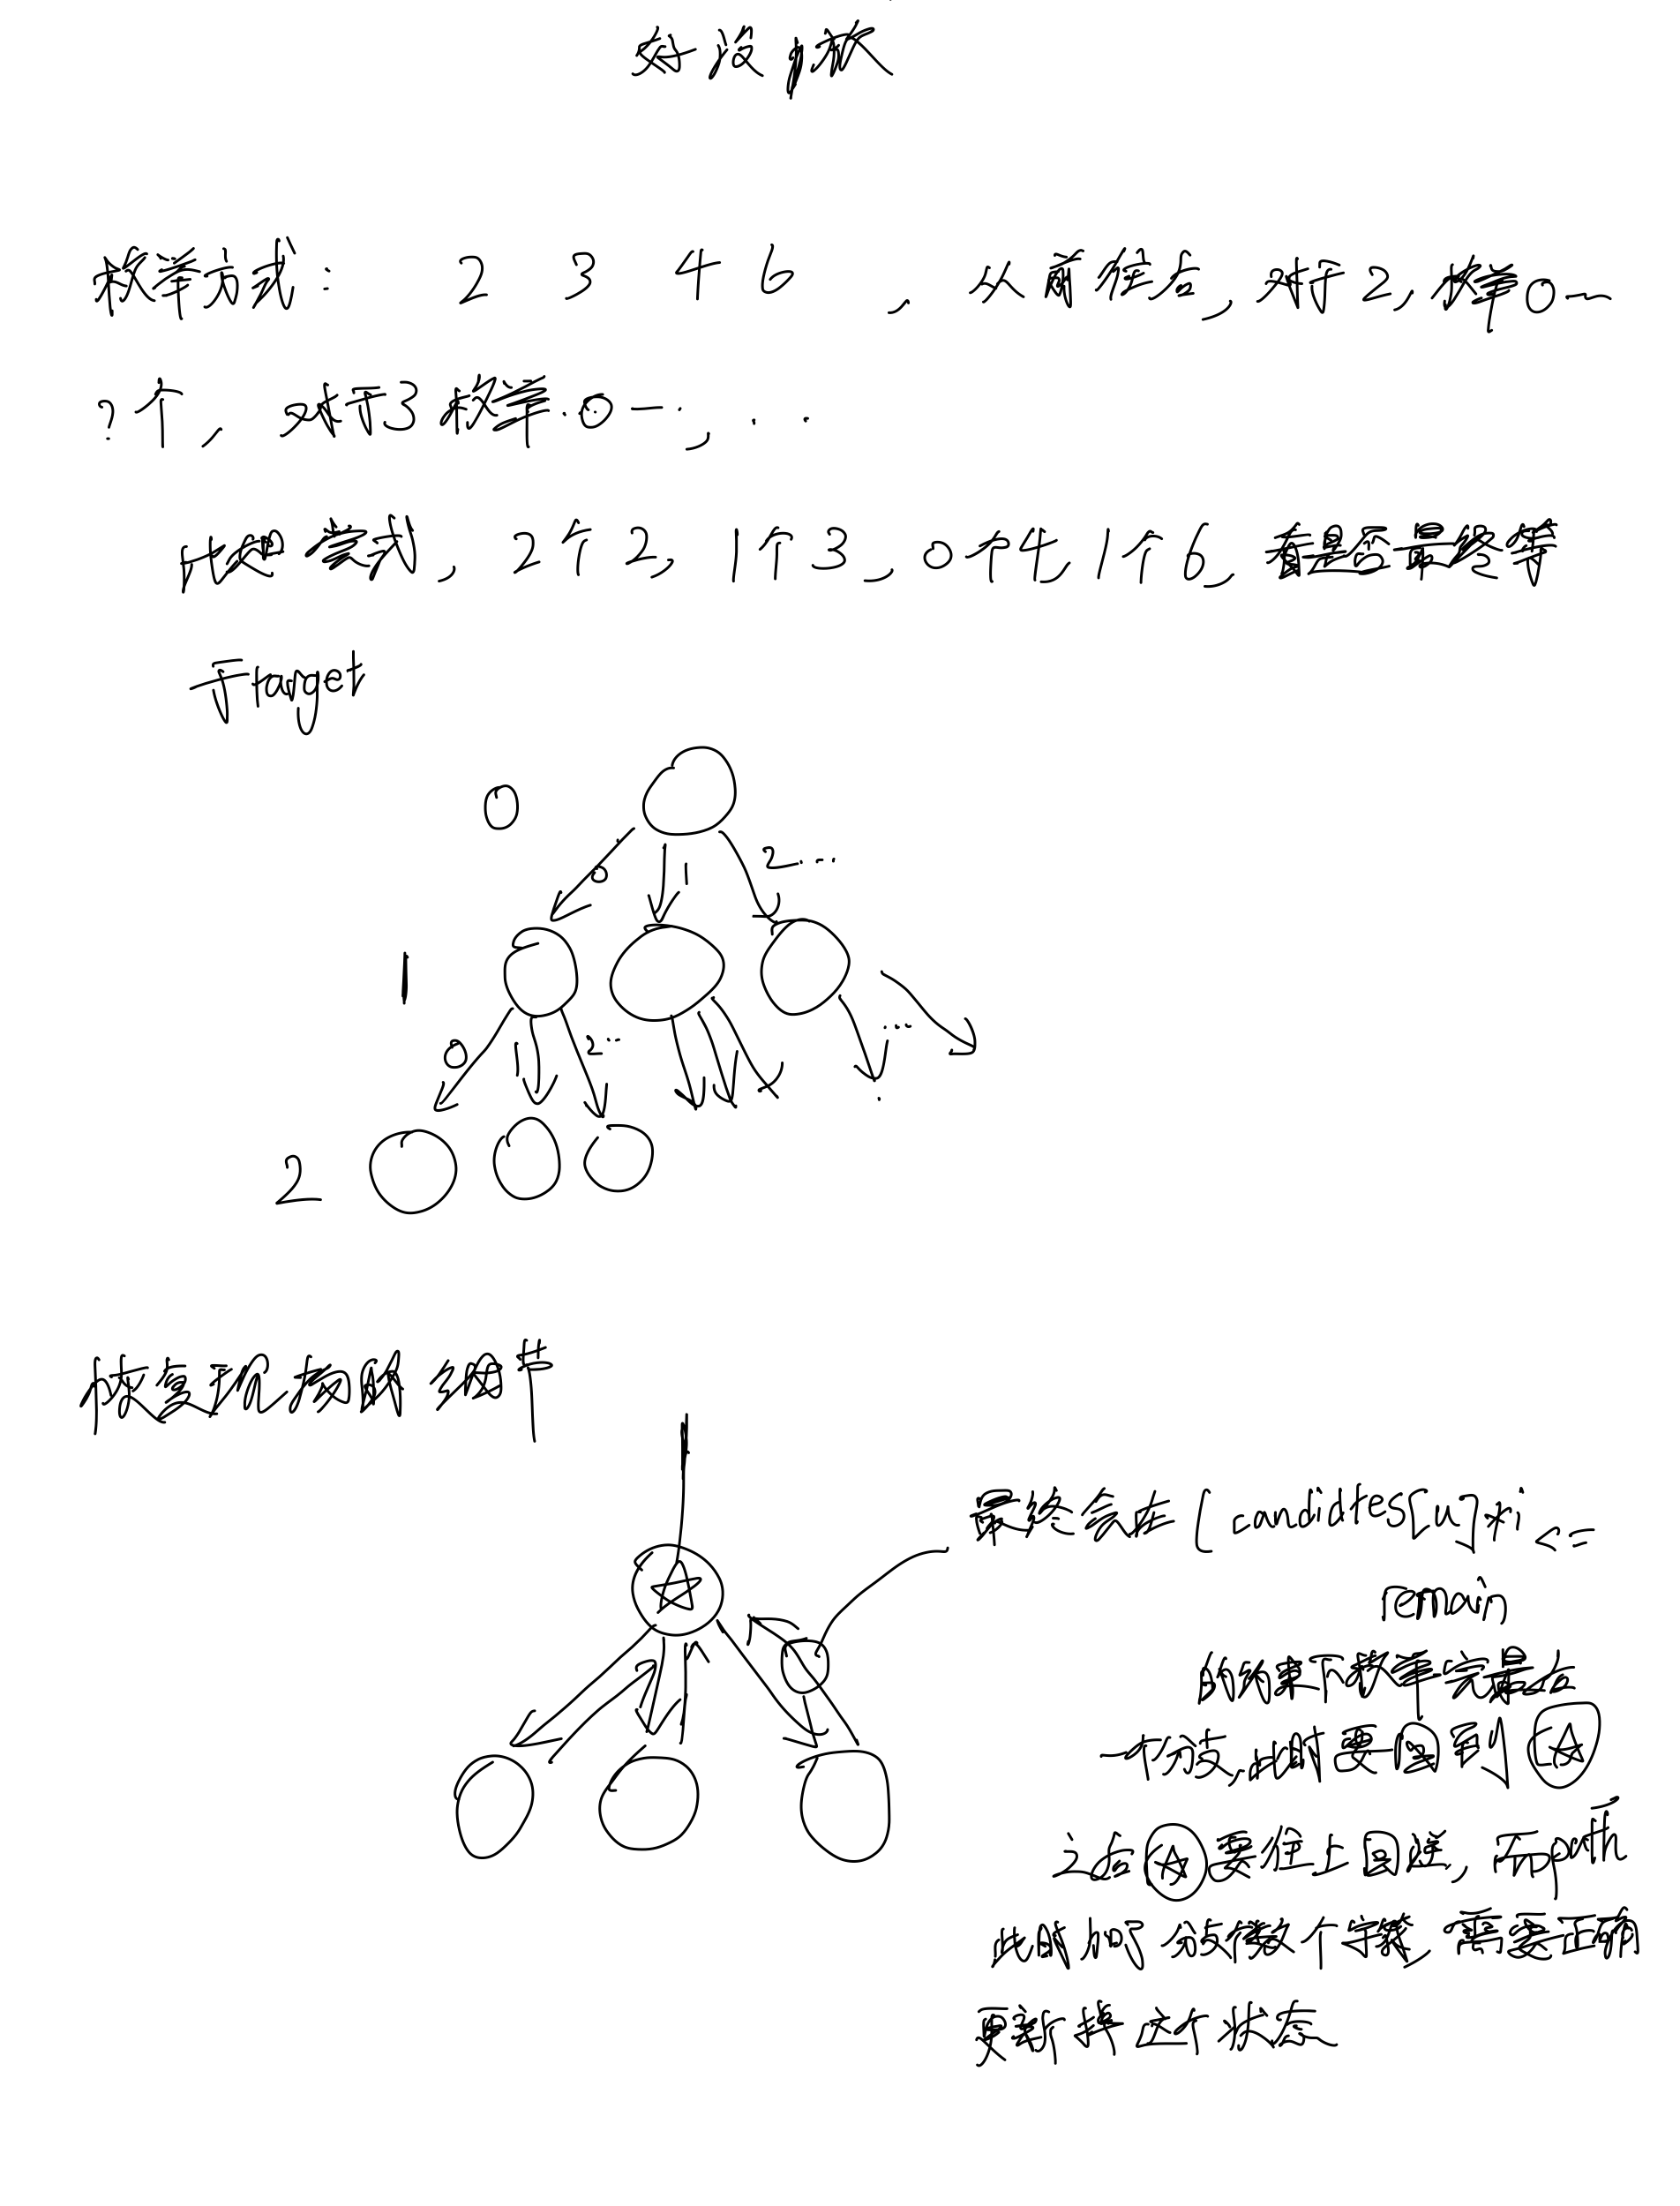 枚举方式: 2 3 4 6 , 从前往后, 对于2, 枚举0—
?个, 对于3枚举0—, ...
比如尝试, 2个2, 1个3, 0个4, 1个6, 看是否最终等
于target
0
0 1 2...
1
0 1 2... ...
2
恢复现场的细节
最终会在(candidtes[u]*i <=
remain
的约束下枚举完最后
一个分支, 此时要回到☆
之后☆要往上回逆, 而path
此时加了 分支 数个 需要正确
更新掉这个状态